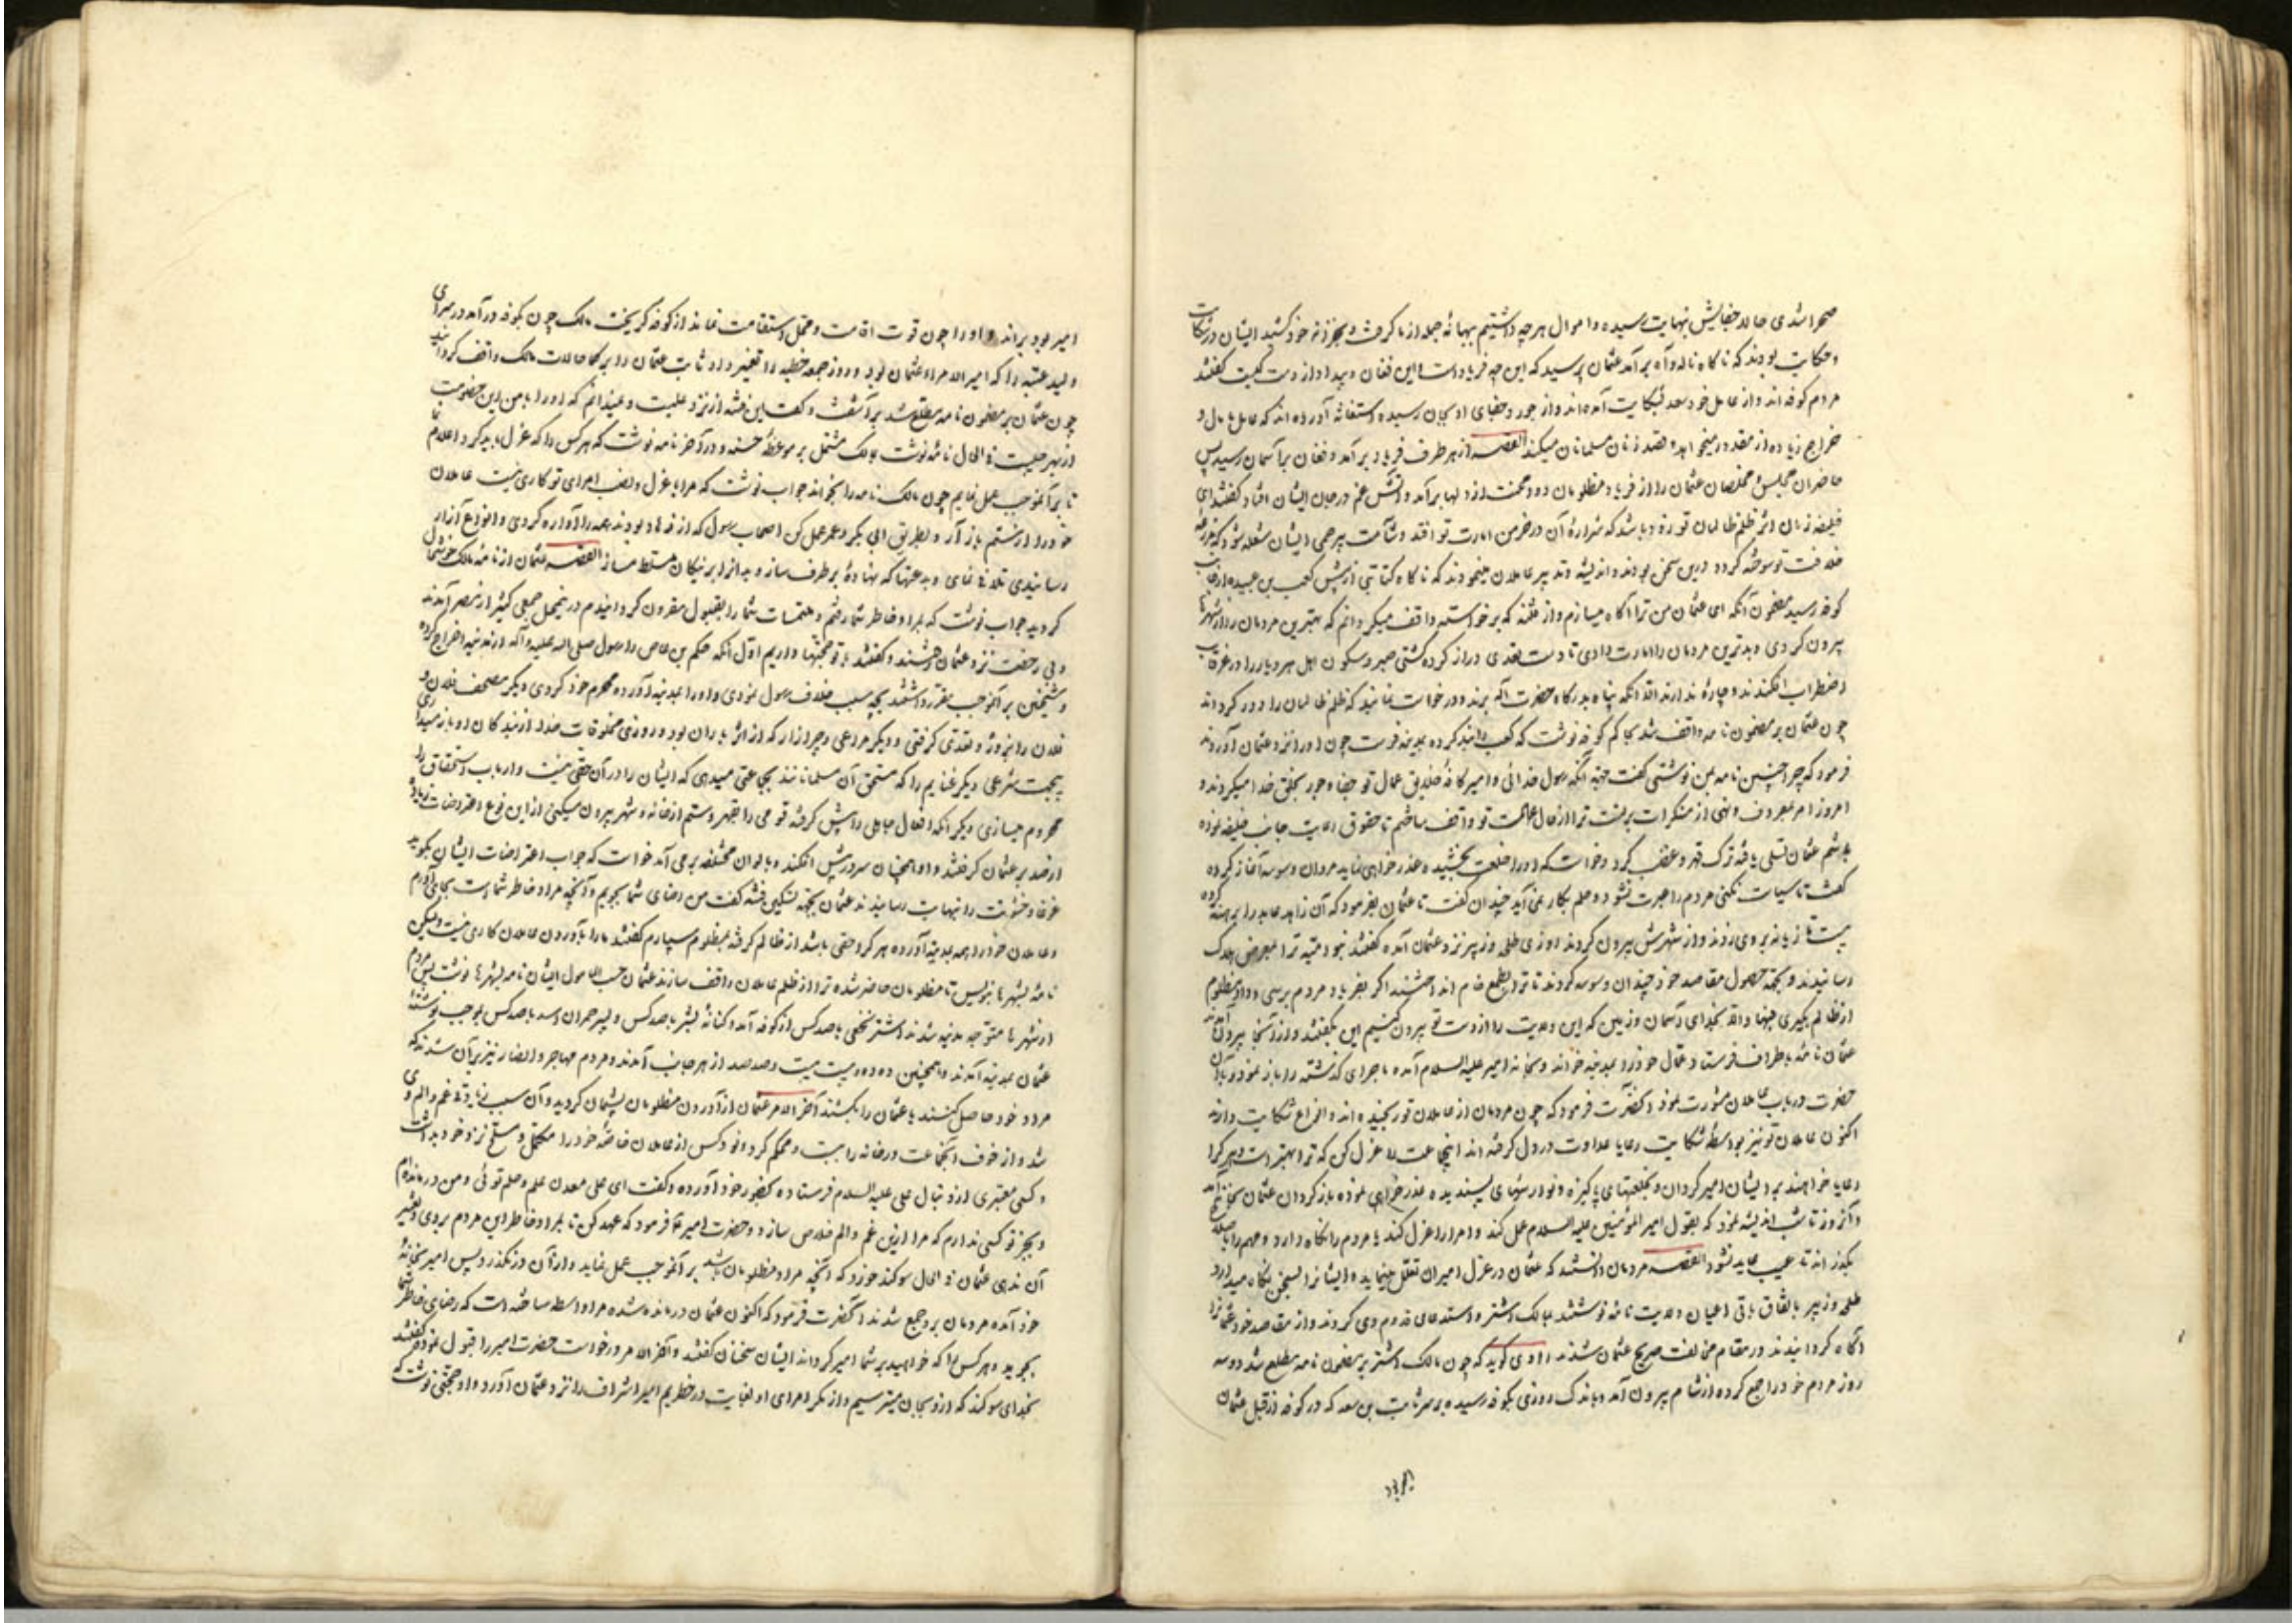 اموال هرچه داشتیم بهانهٔ جمله از ما گرفت و بجز خزانه خود کشید ایشان در شکایت
و حکایت بودند که ناکاه ناله و آه برآمد عثمان پرسید که این چه فریاد است و این فغان و بیداد از دست کیست گفتند
مردم کوفه اند و از عامل خود سعد بشکایت آمده‌اند و از جور و جفای او بجان رسیده استغاثه آورده اند که عامل مال و
خراج زیاده از مقدور میخواهد و قصد زنان مسلمانان میکند القصه از هر طرف فریاد برآمد و فغان بر آسمان رسید پس
حاضران مجلس و مخلصان عثمان را از فریاد مظلومان دود محنت از دلها برآمد و آتش غم در جان ایشان افتاد گفتند ای
خلیفه زمان اثر ظلم ظالمان تو زود باشد که شرارهٔ آن در خرمن امارت تو افتد و شآمت بیرحمی ایشان شعله شود که
خلافت تو سوخته گردد درین سخن بودند و اندیشه و تدبیر عاملان مینمودند که ناکاه کتابتی از پیش کعب بن عبیده از جانب
کوفه رسید مضمون آنکه ای عثمان من ترا آگاه میسازم و از فتنه که برخواسته واقف میگردانم که بهترین مردمان را از شهرها
بیرون کردی و بدترین مردمان را امارت دادی تا دست تعدی دراز کرده کشتی صبر و سکون اهل هر دیار را در غرقاب
اضطراب افکندند و چاره ندارند الا آنکه پناه بدرگاه حضرت اله برند و درخواست نمایند که ظلم ظالمان را دور گرداند
چون عثمان بر مضمون نامه واقف شد بحاکم کوفه نوشت که کعب را بند کرده بمدینه فرست چون او را نزد عثمان آوردند
فرمود که چرا چنین نامه بمن نوشتی گفت جهة آنکه رسول خدائی و امیر کافهٔ خلایق عمال تو جفا و جور بخلق خدا میکردند و
امروز امر بمعروف و نهی از منکرات بر منست ترا از حال عمالت تو واقف ساختم تا حقوق رعایت جانب خلیفه نموده
باشم عثمان تسلی یافته ترک قهر و غضب کرد و خواست که او را خلعت بخشیده عذر خواهی نماید مروان وسوسه آغاز کرده
گفت تا سیاست نکنی مردم را عبرت نشود و حلم بکار نمی آید چندان گفت تا عثمان بفرمود که آن زاهد عابد را برهنه کرده
بیست تازیانه بر وی زدند و از شهرش بیرون کردند روزی طلحه و زبیر نزد عثمان آمده گفتند بنو امیه ترا بمعرض هلاک
رسانیدند و بجهة حصول مقاصد خود چندان وسوسه کردند تا ترا بطمع خام انداختند اگر بفریاد مردم برسی و داد مظلوم
از ظالم بگیری فبها والا بخدای آسمان و زمین که این ولایت را از دست تو بیرون کنیم این بگفتند و از آنجا بیرون آمدند
عثمان نامها باطراف فرستاد عمال خود را بمدینه خواند و بخانه امیر علیه السلام آمده ماجرای گذشته را باز نمود و با آن
حضرت در باب عاملان مشورت نمود آنحضرت فرمود که چون مردمان از عاملان تو رنجیده اند و انواع شکایت دارند
اکنون عاملان تو نیز بواسطهٔ شکایت رعایا عداوت در دل گرفته اند اینجماعت را عزل کن که ترا بهتر است و هر کرا
رعایا خواهند بر ایشان امیر گردان و بخلعتهای پاکیزه و نوازشهای پسندیده عذر خواهی نموده باز گردان عثمان بخانه آمد
و آنروز تا شب اندیشه نمود که بقول امیر المؤمنین علیه السلام عمل کند و امرا را عزل کند یا مردم را نگاه دارد و مهم را باصلاح
بگذراند تا عیب عاید نشود القصه مردمان دانستند که عثمان در عزل امیران تعلل مینماید و ایشانرا بسخن نگاه میدارد
طلحه و زبیر باتفاق باقی اعیان ولایت نامه نوشتند بمالک اشتر و استدعای قدوم وی کردند و از مقاصد خود عثمانرا
آگاه گردانیدند در مقام مخالفت صریح عثمان شدند راوی گوید که چون مالک اشتر بر مضمون نامه مطلع شد دو سه
روز مردم خود را جمع کرده از شام بیرون آمد و باندک روزی بکوفه رسیده بر سر ثابت بن سعد که در کوفه از قبل عثمان
امیر بود براند و او را چون قوت اقامت و تحمل استقامت نماند از کوفه گریخت مالک چون بکوفه درآمد در سرای
ولید عتبه را که امیر الامراء عثمان بود و روز جمعه خطبه را تغییر داد ثابت عثمان را بر کماهی حالات مالک واقف گردانید
چون عثمان بر مضمون نامه مطلع شد برآشفت و گفت این فتنه از نزد علیست و نمیدانم که او را با من این خصومت
از بهر چیست فی الحال نامهٔ نوشت بمالک مشتمل بر موعظهٔ حسنه و در آخر نامه نوشت که هر کس را که عزل باید کرد اعلام نما
تا بر آنموجب عمل نمایم چون مالک نامه را بخواند جواب نوشت که مرا با عزل و نصب امرای تو کاری نیست عاملان
خود را از ستم باز آر و بطریق ابی بکر و عمر عمل کن اصحاب رسول که از فرهاد بودند همه را آواره کردی و انواع آزار
رسانیدی تلافی نمای و بدعتها که نهادهٔ برطرف ساز و بدانرا بر نیکان مسلط مساز القصه عثمان از نامه مالک خوشحال
گردید جواب نوشت که بمراد خاطر شما رفتم و ملتمسات شما را بقبول مقرون گردانیدم درینمحل جمعی کثیر از مصر آمدند
و بی رخصت نزد عثمان رفتند و گفتند با تو حجتها داریم اول آنکه حکم بن عاص را رسول صلی الله علیه و آله از مدینه اخراج کرده
و شیخین بر آنموجب مقرر داشتند بچه سبب خلاف رسول نمودی و او را بمدینه آورده محرم خود کردی دیگر مصحف فلان و
فلان را بزور و تعدی گرفتی و دیگر مراعی و چرازار که از اثر باران بود و روزی مخلوقات خدا از بندگان او باز میداری
بیحجت شرعی دیگر غنایم را که مستحق آن مسلمانانند بجماعتی میدهی که ایشان را در آن حقی نیست و ارباب استحقاق را
محروم میسازی دیگر آنکه افعال جاهلی را پیش گرفته قومی را بقهر و ستم از خانه و شهر بیرون میکنی از این نوع اعتراضات زیاده
از صد بر عثمان گرفتند و او همچنان سر در پیش افکنده بالوان مختلفه برمی آمد خواست که جواب اعتراضات ایشان بگوید
غوغا و خشونت را بنهایت رسانیدند عثمان بجهة تسکین فتنه گفت من رضای شما بجویم و آنچه مراد خاطر شماست بجای آورم
و عاملان خود را همه بمدینه آورده هر کرا حقی باشد از ظالم گرفته بمظلوم سپارم گفتند ما را بآوردن عاملان کاری نیست ولیکن
نامه بشهرها بنویس تا مظلومان حاضر شده ترا از ظلم عاملان واقف سازند عثمان حسب المأمول ایشان نامه بشهرها نوشت پس مردم
از شهرها متوجه مدینه شدند اشتر نخعی با صد کس از کوفه آمد و کنانه بشر با صد کس و پسر حمران اسد با صد کس بموجب نوشته
عثمان بمدینه آمدند و همچنین ده ده و بیست بیست و صد صد از هر جانب آمدند و مردم مهاجر و انصار نیز بر آن شدند که
مراد خود حاصل کنند یا عثمان را بکشند آخر الامر عثمان از آوردن مظلومان پشیمان گردید و آن سبب زیادتی غم و الم وی
شد و از خوف آنجماعت در خانه را بست و محکم کرد و نود کس از عاملان خاصهٔ خود را مکمل و مسلح نزد خود بداشت
و کسی معتبری از دنبال علی علیه السلام فرستاده بحضور خود آورده و گفت ای علی معدن علم و حلم توئی و من درمانده‌ام
و بجز تو کسی ندارم که مرا ازین غم و الم خلاص سازد حضرت امیر ع فرمود که عهد کن تا بمراد خاطر این مردم بروی و تغییر
آن ندهی عثمان فی الحال سوگند خورد که آنچه مراد مظلومان باشد بر آنموجب عمل نماید و از آن درنگذرد پس امیر بخانهٔ
خود آمده مردمان برو جمع شدند آنحضرت فرمود که اکنون عثمان درمانده شده مرا واسطه ساخته است که رضای خاطر شما
بجوید و هر کس را که خواهید بر شما امیر گرداند ایشان سخنان گفتند و آخر الامر درخواست حضرت امیر را قبول نمودند گفتند
بخدای سوگند که ازو بجان میترسیم و از مکر امرای او بغایت در خطریم امیر اشراف را نزد عثمان آورد و او حجتی نوشت که